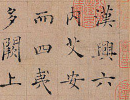 漢興六
内艾安
而四夷
多闕上